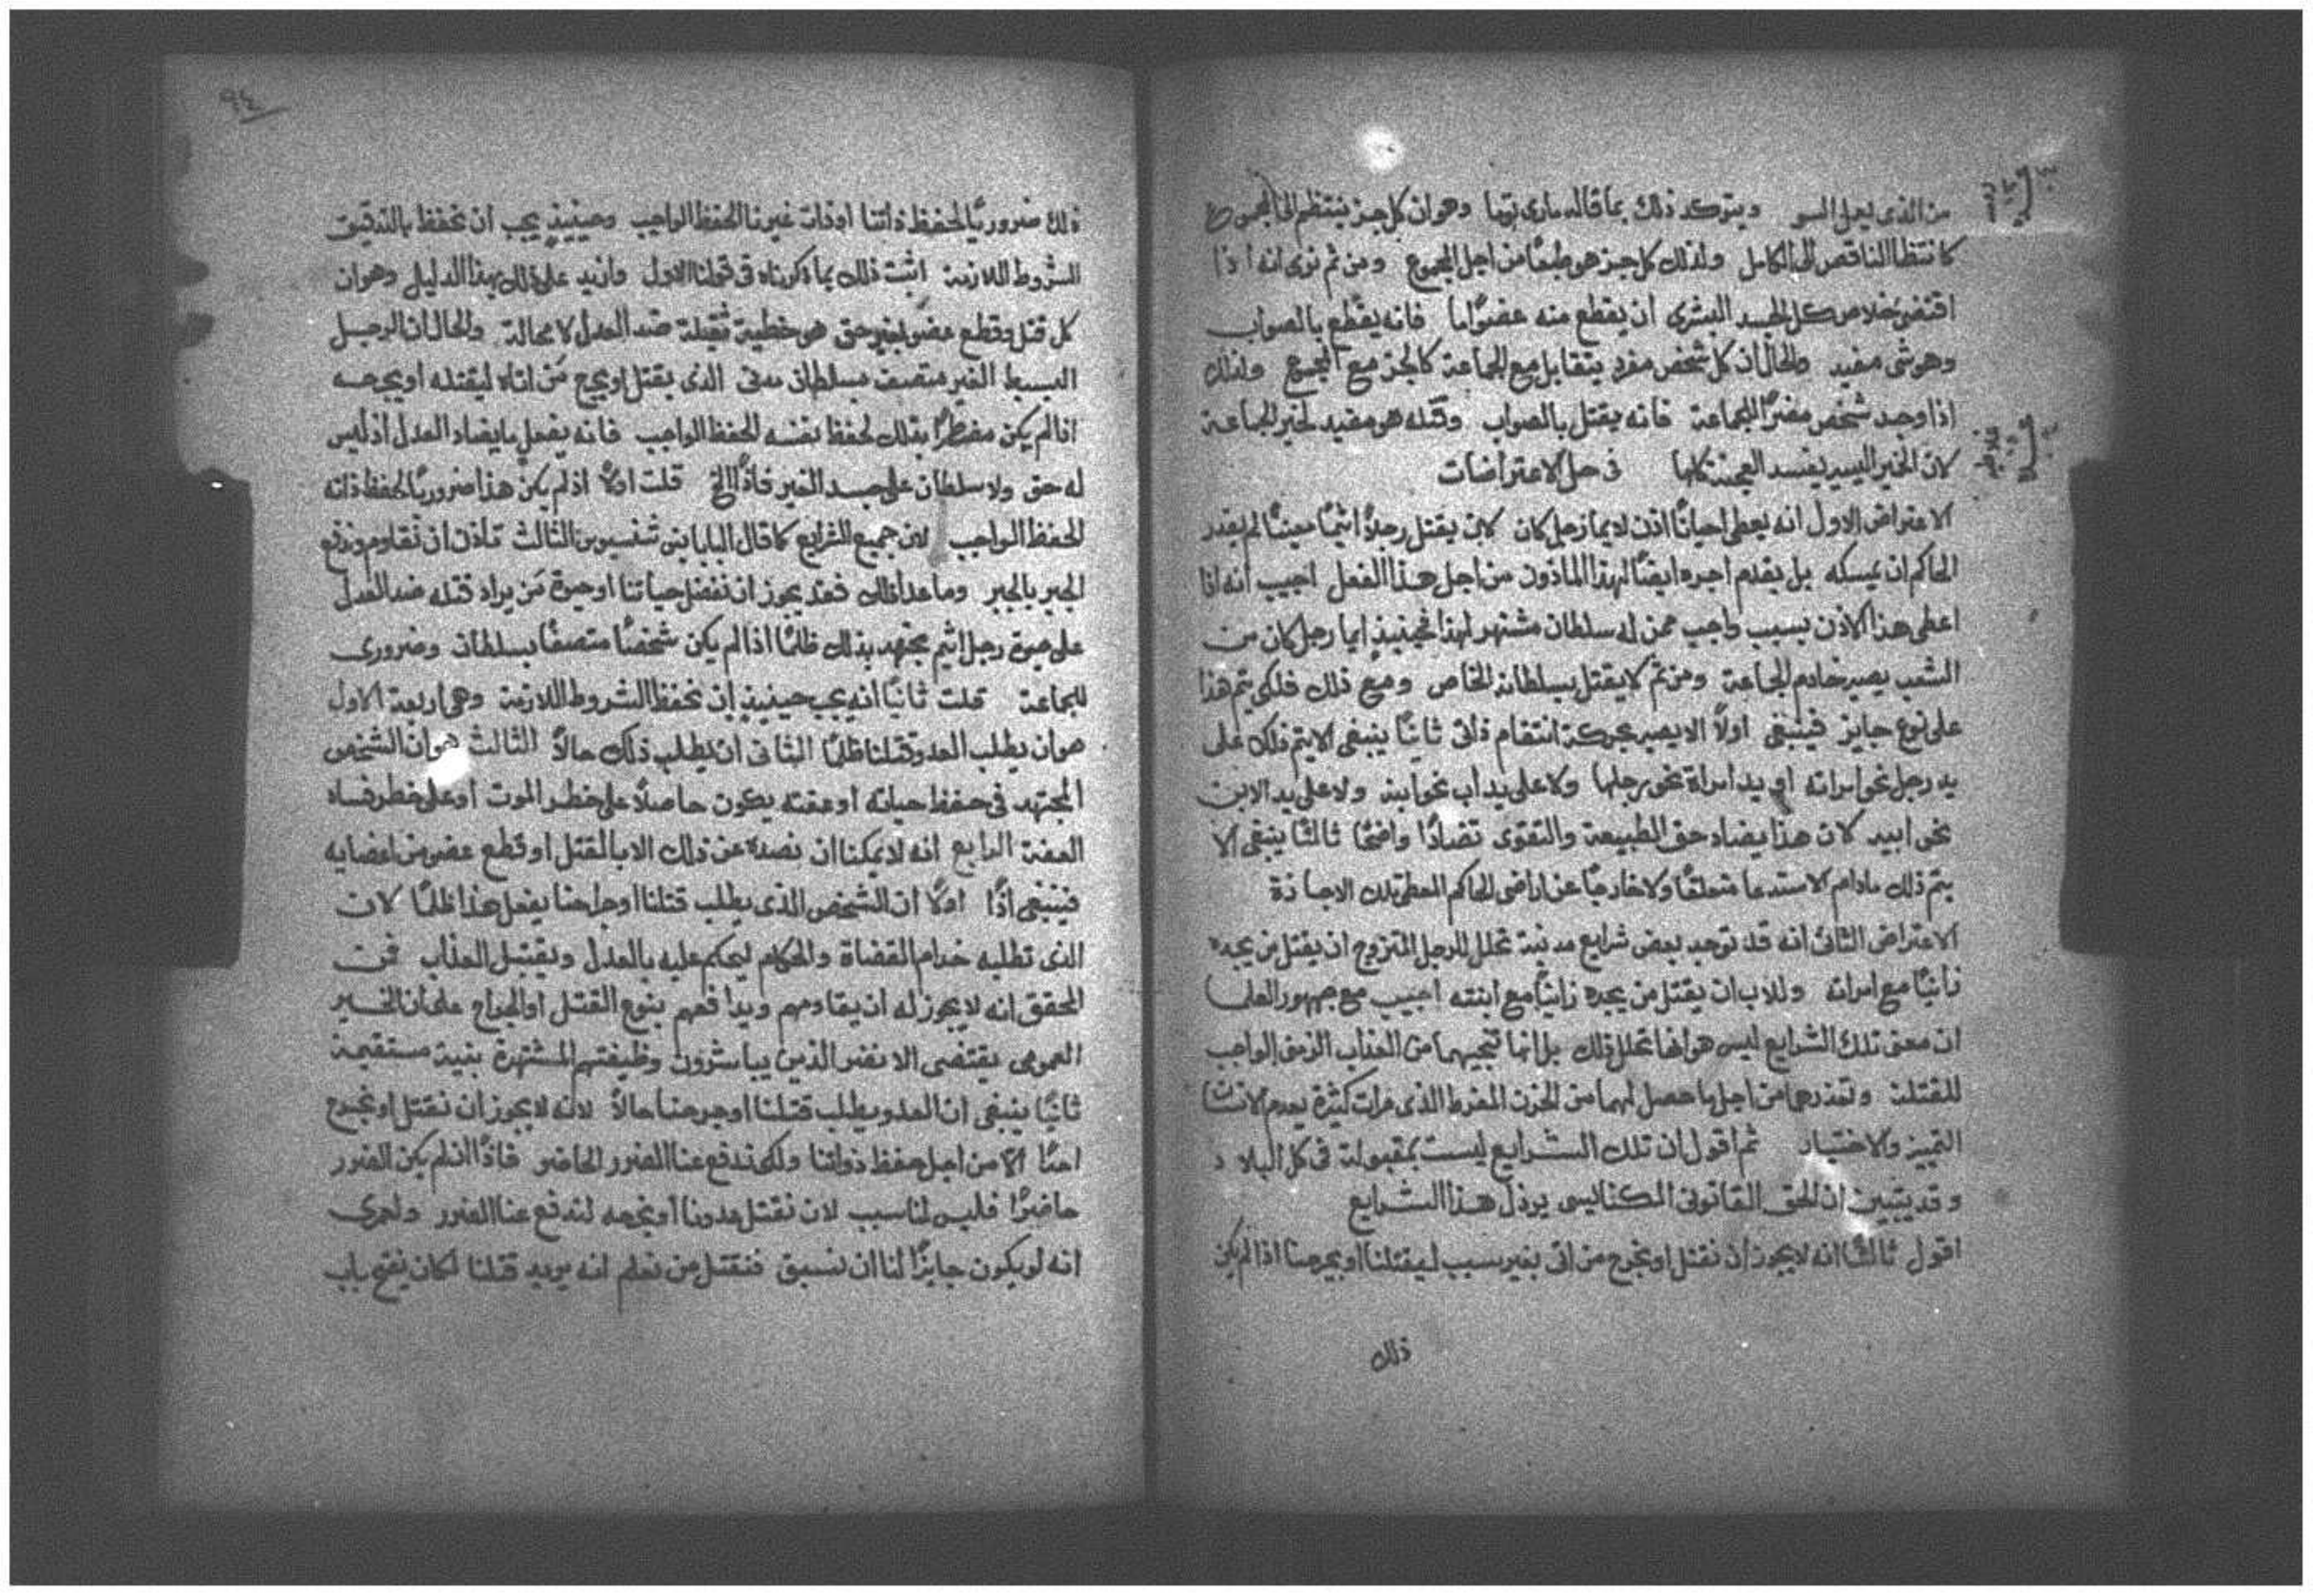 من الذى يعمل السو ويتوكد ذلك بما قاله مارى توما وهو ان كل جز ينتظم الى المجموع
كانتظام الناقص الى الكامل ولذلك كل جز هو طبعًا من اجل المجموع ومن ثم نرى انه اذا
اقتضى خلاص كل الجسد البشرى ان يقطع منه عضوًا ما فانه يقطع بالصواب
وهو شى مفيد والحال ان كل شخص مفرد يتقابل مع الجماعة كالجز مع المجموع ولذلك
اذا وجد شخص مضرًا للجماعة فانه يقتل بالصواب وقتله هو مفيد لخير الجماعة
لان الخمير اليسير يفسد العجينة كلها فى حل الاعتراضات
الاعتراض الاول انه يعطى احيانًا اذن لايما رجل كان لان يقتل رجلًا اثيمًا معينًا لم يقدر
الحاكم ان يمسكه بل يقدم اجره ايضًا لهذا الماذون من اجل هذا الفعل اجيب انه اذا
اعطى هذا الاذن بسبب واجب ممن له سلطان مشتهر لهذا فحينيذٍ ايما رجل كان من
الشعب يصير خادم الجماعة ومن ثم لا يقتل بسلطانه الخاص ومع ذلك فلكى يتم هذا
على نوع جايز فينبغى اولًا الا يصير بحركة انتقام ذاتى ثانيًا ينبغى الا يتم ذلك على
يد رجل نحو امراته او يد امراة نحو رجلها ولا على يد اب نحو ابنه ولا على يد الابن
نحو ابيه لان هذا يضاد حق الطبيعة والتقوى تضادًا واضحًا ثالثًا ينبغى الا
يتم ذلك مادام الاستدعا متعلقًا ولا خارجًا عن اراضى الحاكم المعطى تلك الاجازة
الاعتراض الثانى انه قد توجد بعض شرايع مدنية تحلل للرجل المتزوج ان يقتل من يجده
زانيًا مع امراته وللاب ان يقتل من يجده زانيًا مع ابنته اجيب مع جمهور العلما
ان معنى تلك الشرايع ليس هو انها تحلل ذلك بل انها تنجيهما من العذاب الزمنى الواجب
للقتلة وتعذرهما من اجل ما حصل لهما من الحزن المفرط الذى مرات كثيرة يعدم الانسان
التمييز والاختيار ثم اقول ان تلك الشرايع ليست بمقبولة فى كل البلاد
وقد يتبين ان الحق القانونى الكنايسى يرذل هذا الشرايع
اقول ثالثًا انه لا يجوز ان نقتل او نجرح من اتى بغير سبب ليقتلنا او يجرحنا اذا لم يكن
ذلك
٩٤
ذلك ضروريًا لحفظ ذاتنا او ذات غيرنا الحفظ الواجب وحينيذٍ يجب ان نحفظ بالتدقيق
الشروط اللازمة اثبت ذلك بما ذكرناه فى قولنا الاول وازيد على ذلك بهذا الدليل وهو ان
كل قتل وقطع عضو بغير حق هو خطية ثقيلة ضد العدل لا محالة والحال ان الرجل
البسيط الغير متصف بسلطان مدنى الذى يقتل او يجرح من اتاه ليقتله او يجرحه
اذا لم يكن مضطرًا بذلك لحفظ نفسه الحفظ الواجب فانه يفعل ما يضاد العدل اذ ليس
له حق ولا سلطان على جسد الغير فاذًا الخ قلت اولًا اذ لم يكن هذا ضروريًا لحفظ ذاته
الحفظ الواجب لان جميع الشرايع كما قال البابا الثالث تاذن ان نقاوم وندفع
الجبر بالجبر وما عدا ذلك فقد يجوز ان نفضل حياتنا او حيوة من يراد قتله ضد العدل
على حيوة رجل اثيم يجتهد بذلك ظلمًا اذا لم يكن شخصًا متصفًا بسلطان وضرورى
للجماعة قلت ثانيًا انه يجب حينيذٍ ان نحفظ الشروط اللازمة وهى اربعة الاول
هو ان يطلب العدو قتلنا ظلمًا الثانى ان يطلب ذلك حالًا الثالث هو ان الشخص
المجتهد فى حفظ حياته او عفته يكون حاصلًا على خطر الموت او على خطر فساد
العفة الرابع انه لا يمكننا ان نصده عن ذلك الا بالقتل او قطع عضو من اعضايه
فينبغى اذًا اولًا ان الشخص الذى يطلب قتلنا او جراحنا يفعل هذا ظلمًا لان
الذى تطلبه خدام القضاة والحكام ليحكم عليه بالعدل ويقبل العذاب فمن
المحقق انه لا يجوز له ان يقاومهم ويدافعهم بنوع القتل او الجراح على ان الخير
العمومى يقتضى الا نضر الذين يباشرون وظيفتهم المشتهرة بنية مستقيمة
ثانيًا ينبغى ان العدو يطلب قتلنا او جرحنا حالًا لانه لا يجوز ان نقتل او نجرح
احدًا الا من اجل حفظ ذواتنا ولكى ندفع عنا الضرر الحاضر فاذًا اذ لم يكن الضرر
حاضرًا فليس لنا سبب لان نقتل عدونا او نجرحه لندفع عنا الضرر ولعمرى
انه لو يكون جايزًا لنا ان نسبق فنقتل من نعلم انه يريد قتلنا لكان يفتح باب